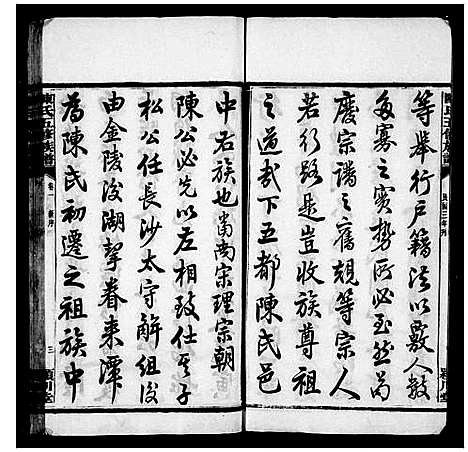 等舉行戶籍法以數人數
多寡之實勢所必至然苟
廢宗譜之舊規等宗人
若行路是豈收族尊祖
之道哉下五都陳氏邑
中右族也當南宋理宗朝
陳公必先以左相致仕其子
松公任長沙太守解組後
由金陵後湖挈眷來潭
為陳氏初遷之祖族中
陳氏五修族譜
卷一
新序
三
潁川堂